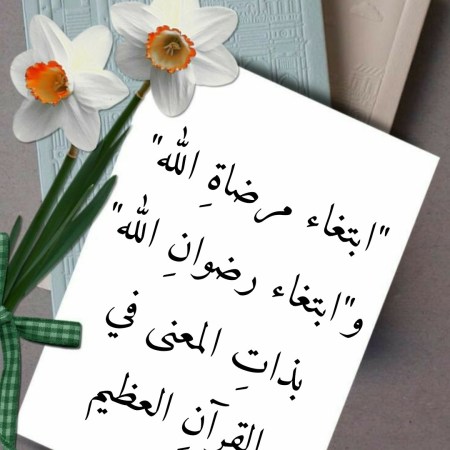 "ابتغاء مرضاةِ الله"
و"ابتغاء رضوانِ الله"
بذاتِ المعنى في
القرآنِ العظيم